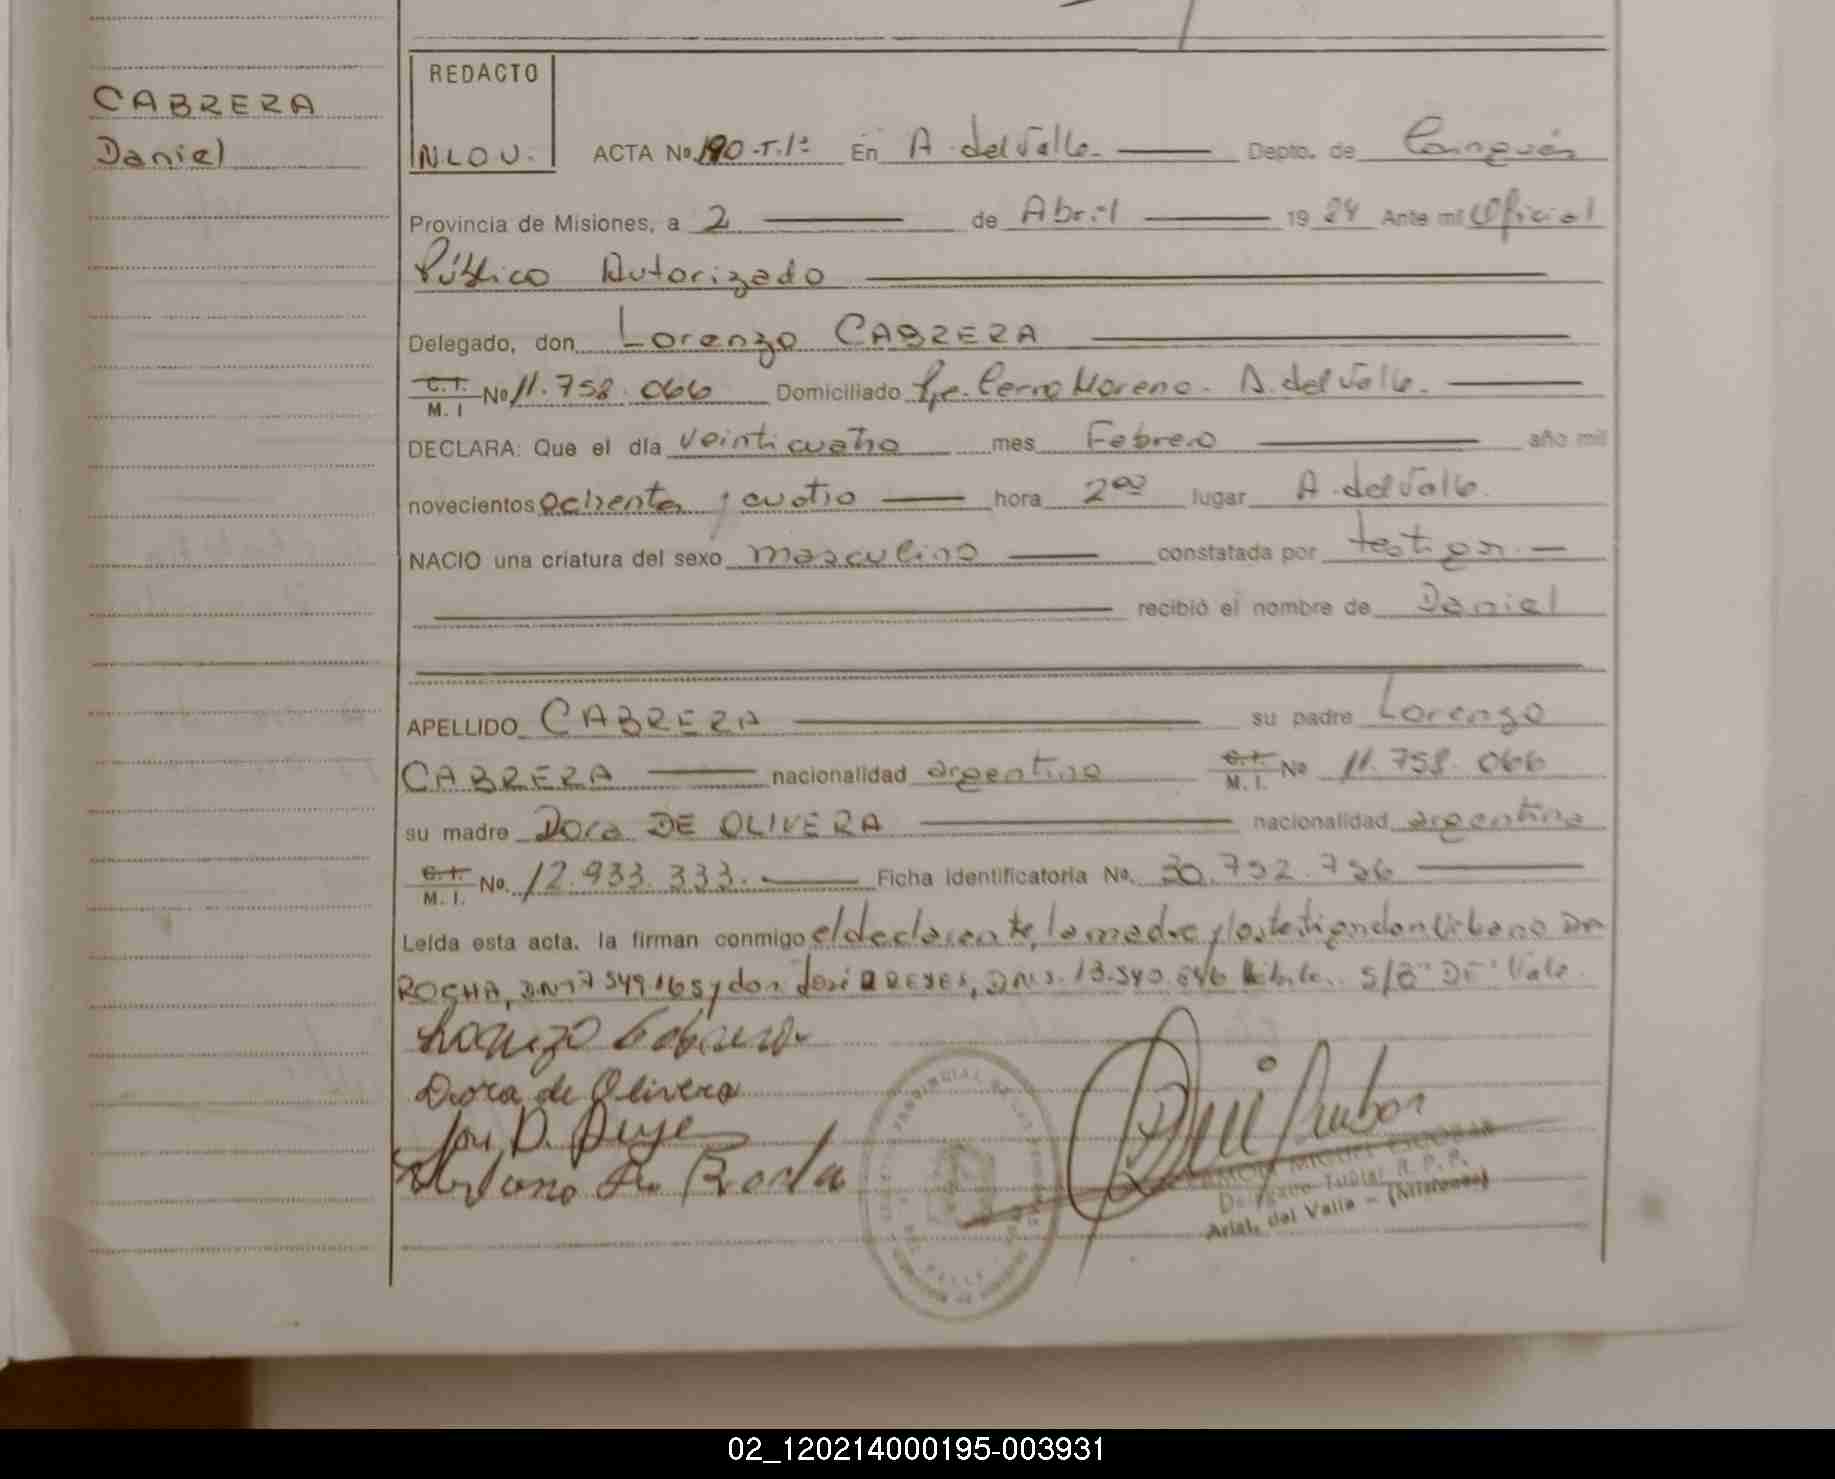 CABRERA
Daniel
REDACTO
NLOU.
ACTA No 190-T.1º En A. del Valle. Depto. de Cainguás
Provincia de Misiones, a 2 de Abril 1984 Ante mi Oficial
Público Autorizado
Delegado, don Lorenzo CABRERA
C.I. M. I No 11.758.066 Domiciliado Pje. Cerro Moreno. A. del Valle.
DECLARA: Que el día veinticuatro mes Febrero año mil
novecientos ochenta y cuatro hora 2⁰⁰ lugar A. del Valle.
NACIO una criatura del sexo masculino constatada por testigos.
recibió el nombre de Daniel
APELLIDO CABRERA su padre Lorenzo
CABRERA nacionalidad argentino C.I. M. I. No 11.758.066
su madre Dora DE OLIVERA nacionalidad argentina
C.I. M. I. No. 12.933.333. Ficha Identificatoria No. 30.792.786
Leída esta acta, la firman conmigo el declarante, la madre y los testigos don Urbano Da
ROCHA, y don José REYES, Vale.
Lorenzo Cabrera
Dora de Olivera
José D.
Urbano Da Rocha
RAMON MIGUEL ESCOBAR
Delegado Titular R. P. P.
Arist. del Valle - (Misiones)
02_120214000195-003931